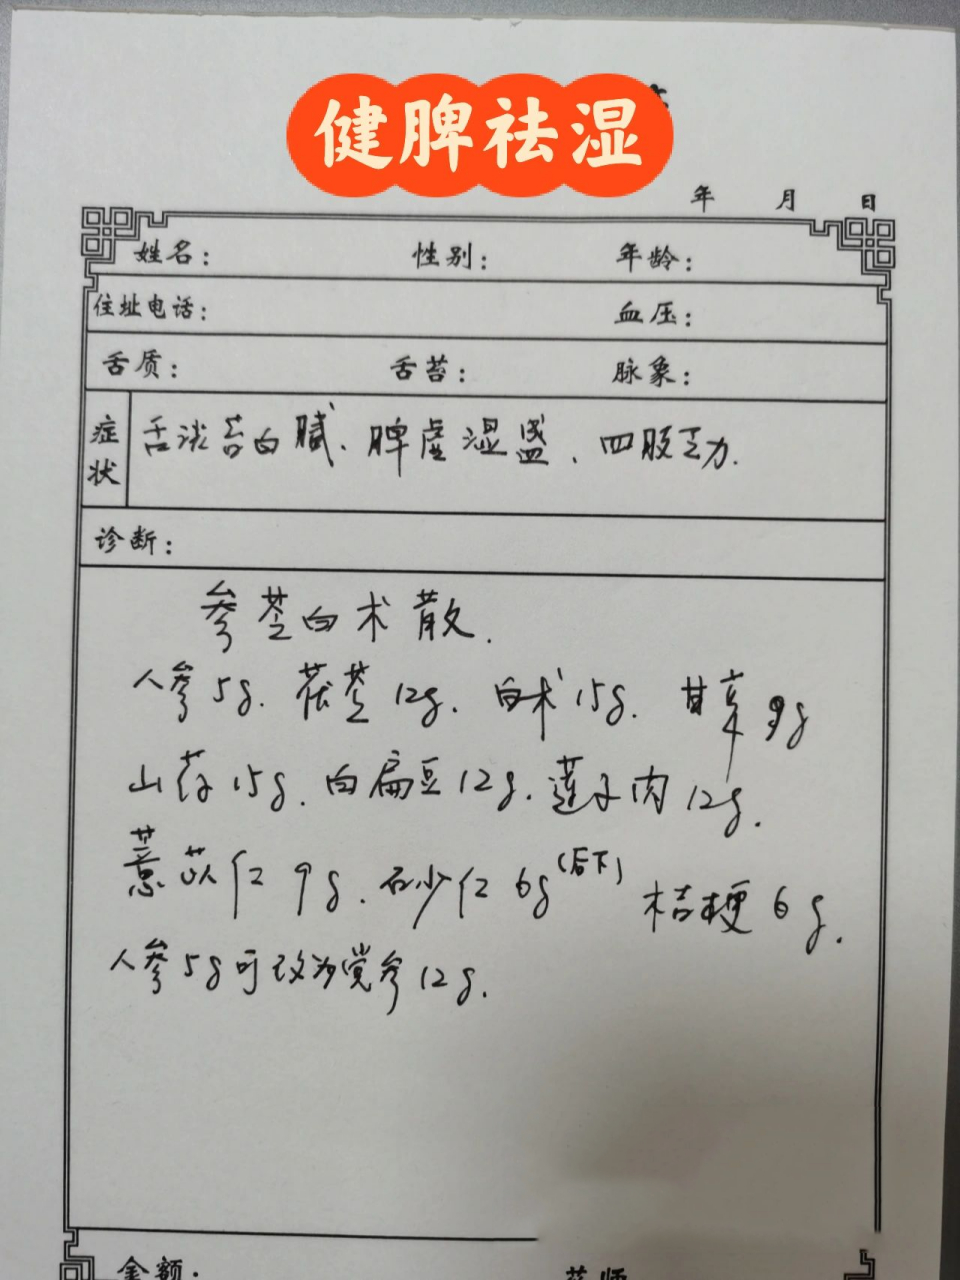 健脾祛湿
年 月 日
姓名： 性别： 年龄：
住址电话： 血压：
舌质： 舌苔： 脉象：
症状 舌淡苔白腻、脾虚湿盛、四肢乏力.
诊断：
参苓白术散.
人参5g. 茯苓12g. 白术15g. 甘草9g
山药15g. 白扁豆12g. 莲子肉12g.
薏苡仁9g. 砂仁6g(后下) 桔梗6g.
人参5g可改为党参12g.
金额： 药师